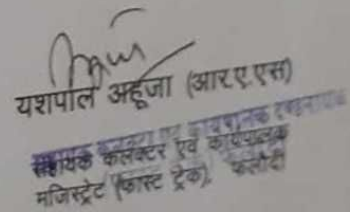 यशपाल अहूजा (आर.ए.एस)
सहायक कलेक्टर एवं कार्यपालक
मजिस्ट्रेट (फास्ट ट्रेक), फलौदी